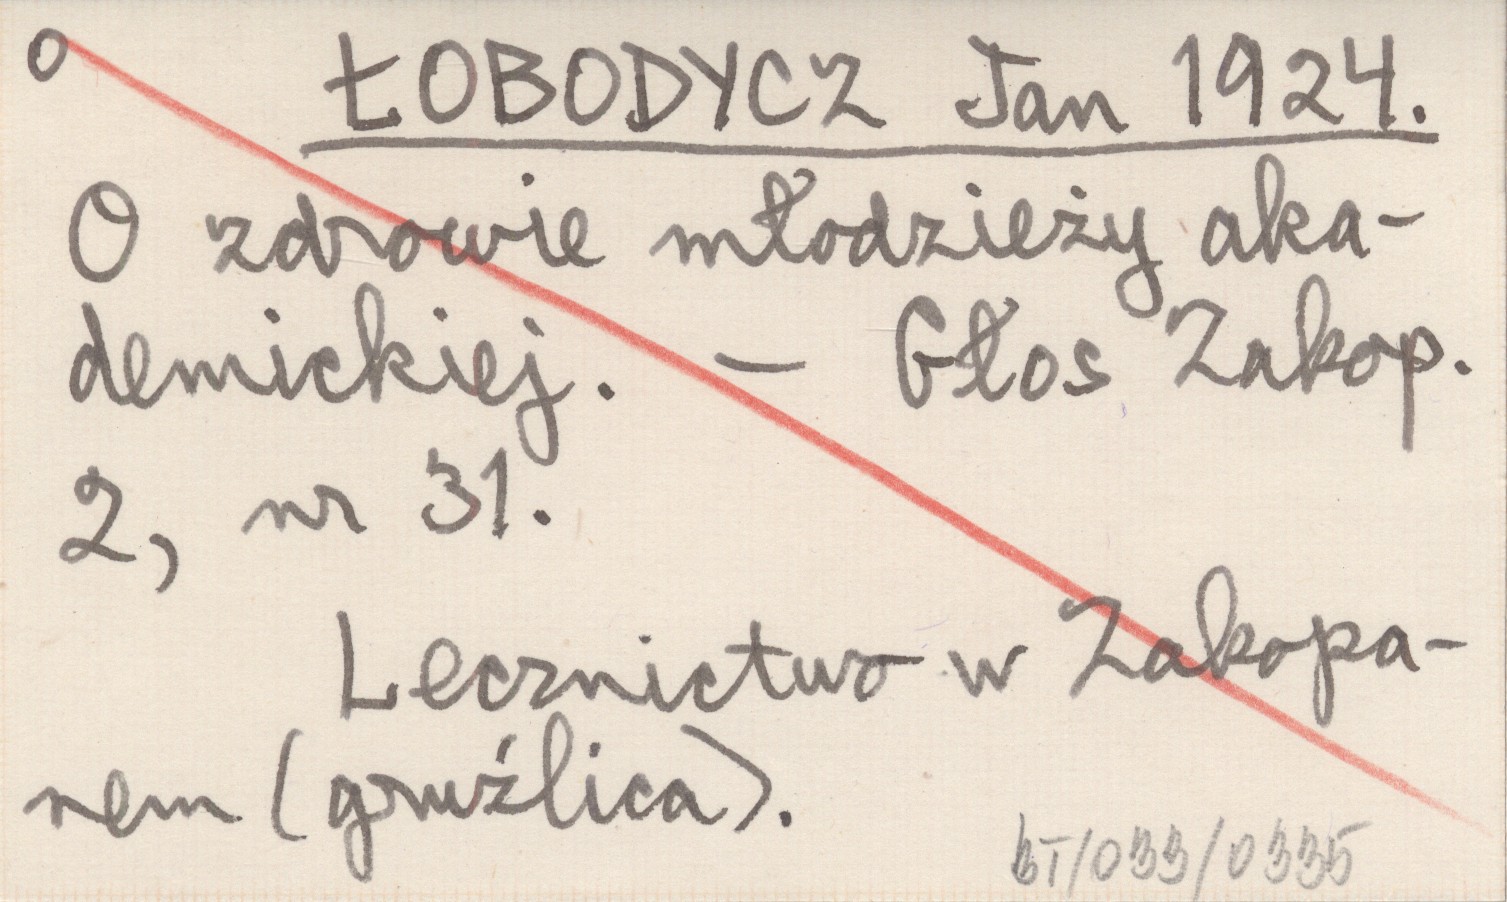 o
ŁOBODYCZ Jan 1924.
O zdrowie młodzieży aka-
demickiej. — Głos Zakop.
2, nr 31.
Lecznictwo w Zakopa-
nem (gruźlica).
BT/033/0335